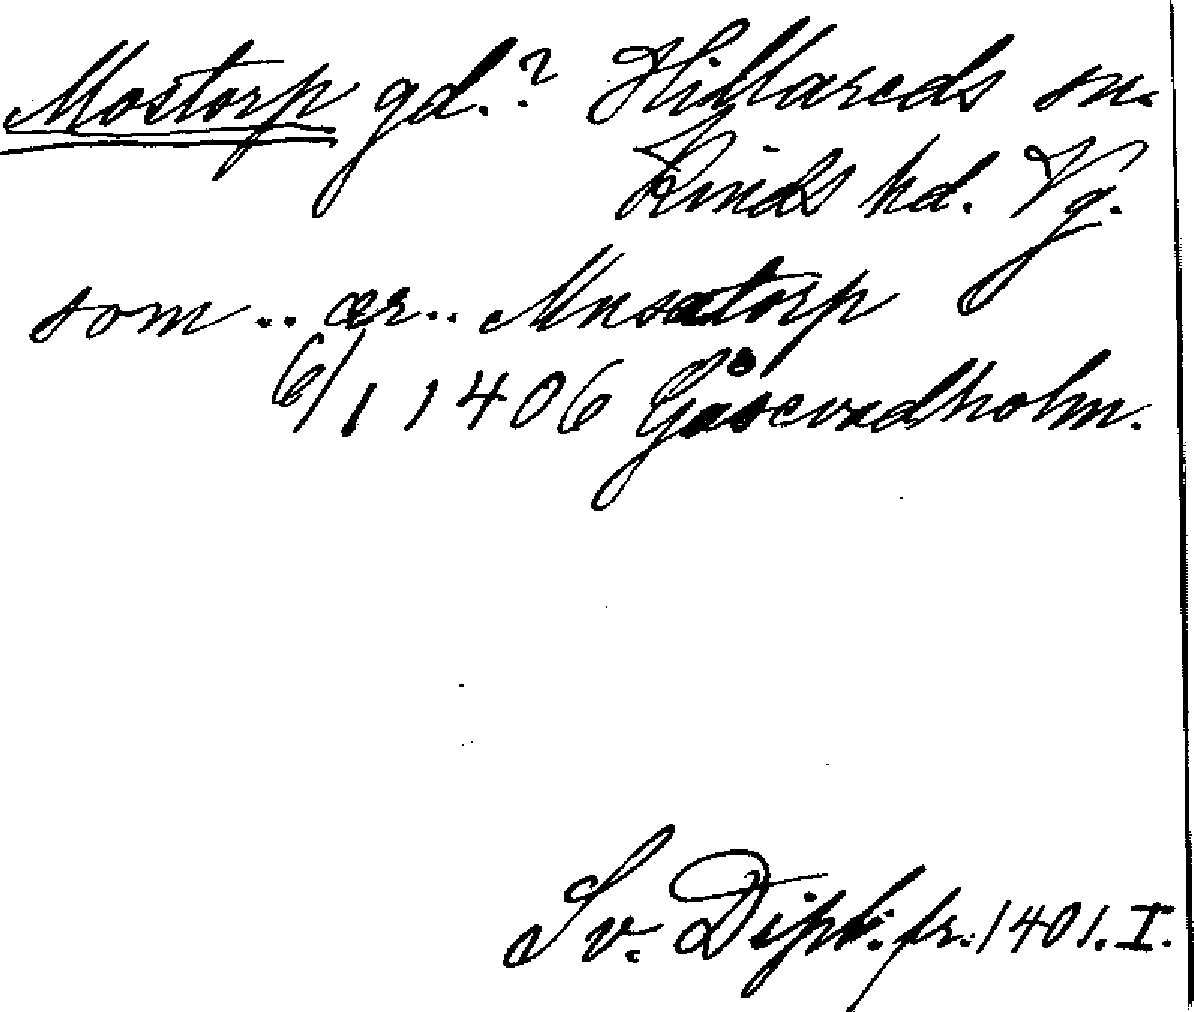 Mostorp gd.? Hillareds sn.
Kinds hd. Vg.
som .. ær .. Mnsatorp
6/1 1406 Gåsevadholm.
Sv. Dipl. fr. 1401. I.